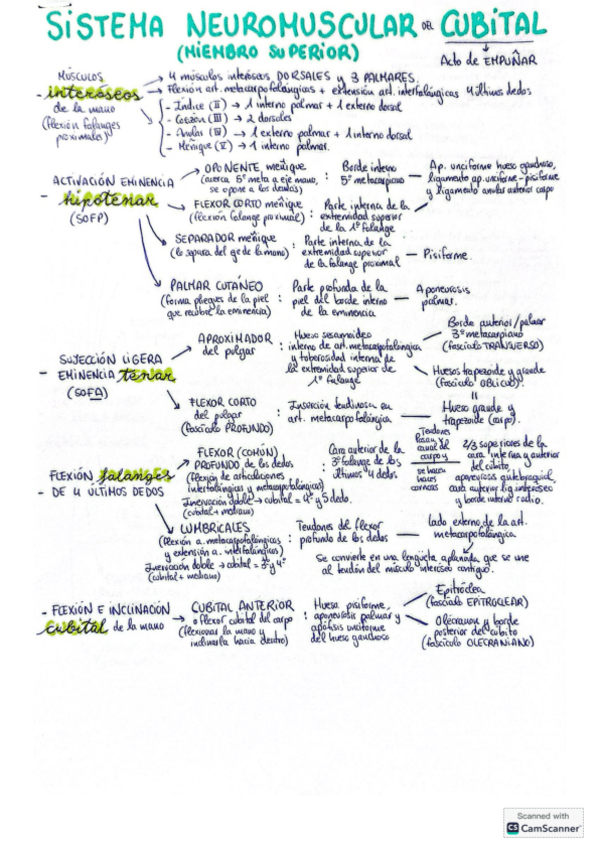 SISTEMA NEUROMUSCULAR DEL CUBITAL
(MIEMBRO SUPERIOR)
Acto de EMPUÑAR
MÚSCULOS
- interóseos
de la mano
(flexión falanges
proximales)
→ 4 músculos interóseos DORSALES y 3 PALMARES.
→ Flexión art. metacarpofalángicas + extensión art. interfalángicas 4 últimos dedos
- Índice (II) → 1 interno palmar + 1 externo dorsal
- Corazón (III) → 2 dorsales
- Anular (IV) → 1 externo palmar + 1 interno dorsal
- Meñique (V) → 1 interno palmar.
ACTIVACIÓN EMINENCIA
- hipotenar
(SOFP)
OPONENTE meñique
(acerca 5º meta a eje mano,
se opone a los demás)
: Borde interno
5º metacarpiano
Ap. unciforme hueso ganchoso,
ligamento ap. unciforme-pisiforme
y ligamento anular anterior carpo
FLEXOR CORTO meñique
(flexión falange proximal)
: Parte interna de la
extremidad superior
de la 1º falange
SEPARADOR meñique
(lo separa del eje de la mano)
: Parte interna de la
extremidad superior
de la falange proximal
— Pisiforme.
PALMAR CUTÁNEO
(forma pliegues de la piel
que recubre la eminencia)
: Parte profunda de la
piel del borde interno
de la eminencia
— Aponeurosis
palmar.
- SUJECCIÓN LIGERA
EMINENCIA tenar
(SOFA)
APROXIMADOR
del pulgar
: Hueso sesamoideo
interno de art. metacarpofalángica
y tuberosidad interna de
la extremidad superior de
1º falange
Borde anterior/palmar
3º metacarpiano
(fascículo TRANSVERSO)
Huesos trapezoide y grande
(fascículo OBLICUO).
FLEXOR CORTO
del pulgar
(fascículo PROFUNDO)
: Inserción tendinosa en
art. metacarpofalángica
=
Hueso grande y
trapezoide (carpo).
FLEXIÓN falanges
- DE 4 ÚLTIMOS DEDOS
FLEXOR (COMÚN)
PROFUNDO de los dedos
(flexión de articulaciones
interfalángicas y metacarpofalángicas)
Inervación doble → cubital = 4º y 5 dedo.
(cubital + mediano)
: Cara anterior de la
3º falange de los
últimos 4 dedos
Tendones
canal del
carpo y
se hacen
carnosos
2/3 superiores de la
cara interna y anterior
del cúbito,
aponeurosis antebraquial,
cara anterior lig. interóseo
y borde interno radio.
LUMBRICALES
(flexión a. metacarpofalángicas
y extensión a. interfalángicas)
Inervación doble → cubital = 3º y 4º
(cubital + mediano)
: Tendones del flexor
profundo de los dedos
— lado externo de la art.
metacarpofalángica
Se convierte en una lengüeta aplanada que se une
al tendón del músculo interóseo contiguo.
- FLEXIÓN E INCLINACIÓN
cubital de la mano
CUBITAL ANTERIOR
o flexor cubital del carpo
(flexionar la mano y
inclinarla hacia dentro)
: Hueso pisiforme,
aponeurosis palmar y
apófisis unciforme
del hueso ganchoso
Epitróclea
(fascículo EPITROCLEAR)
Olécranon y borde
posterior del cúbito
(fascículo OLECRANIANO)
Scanned with
CS CamScanner